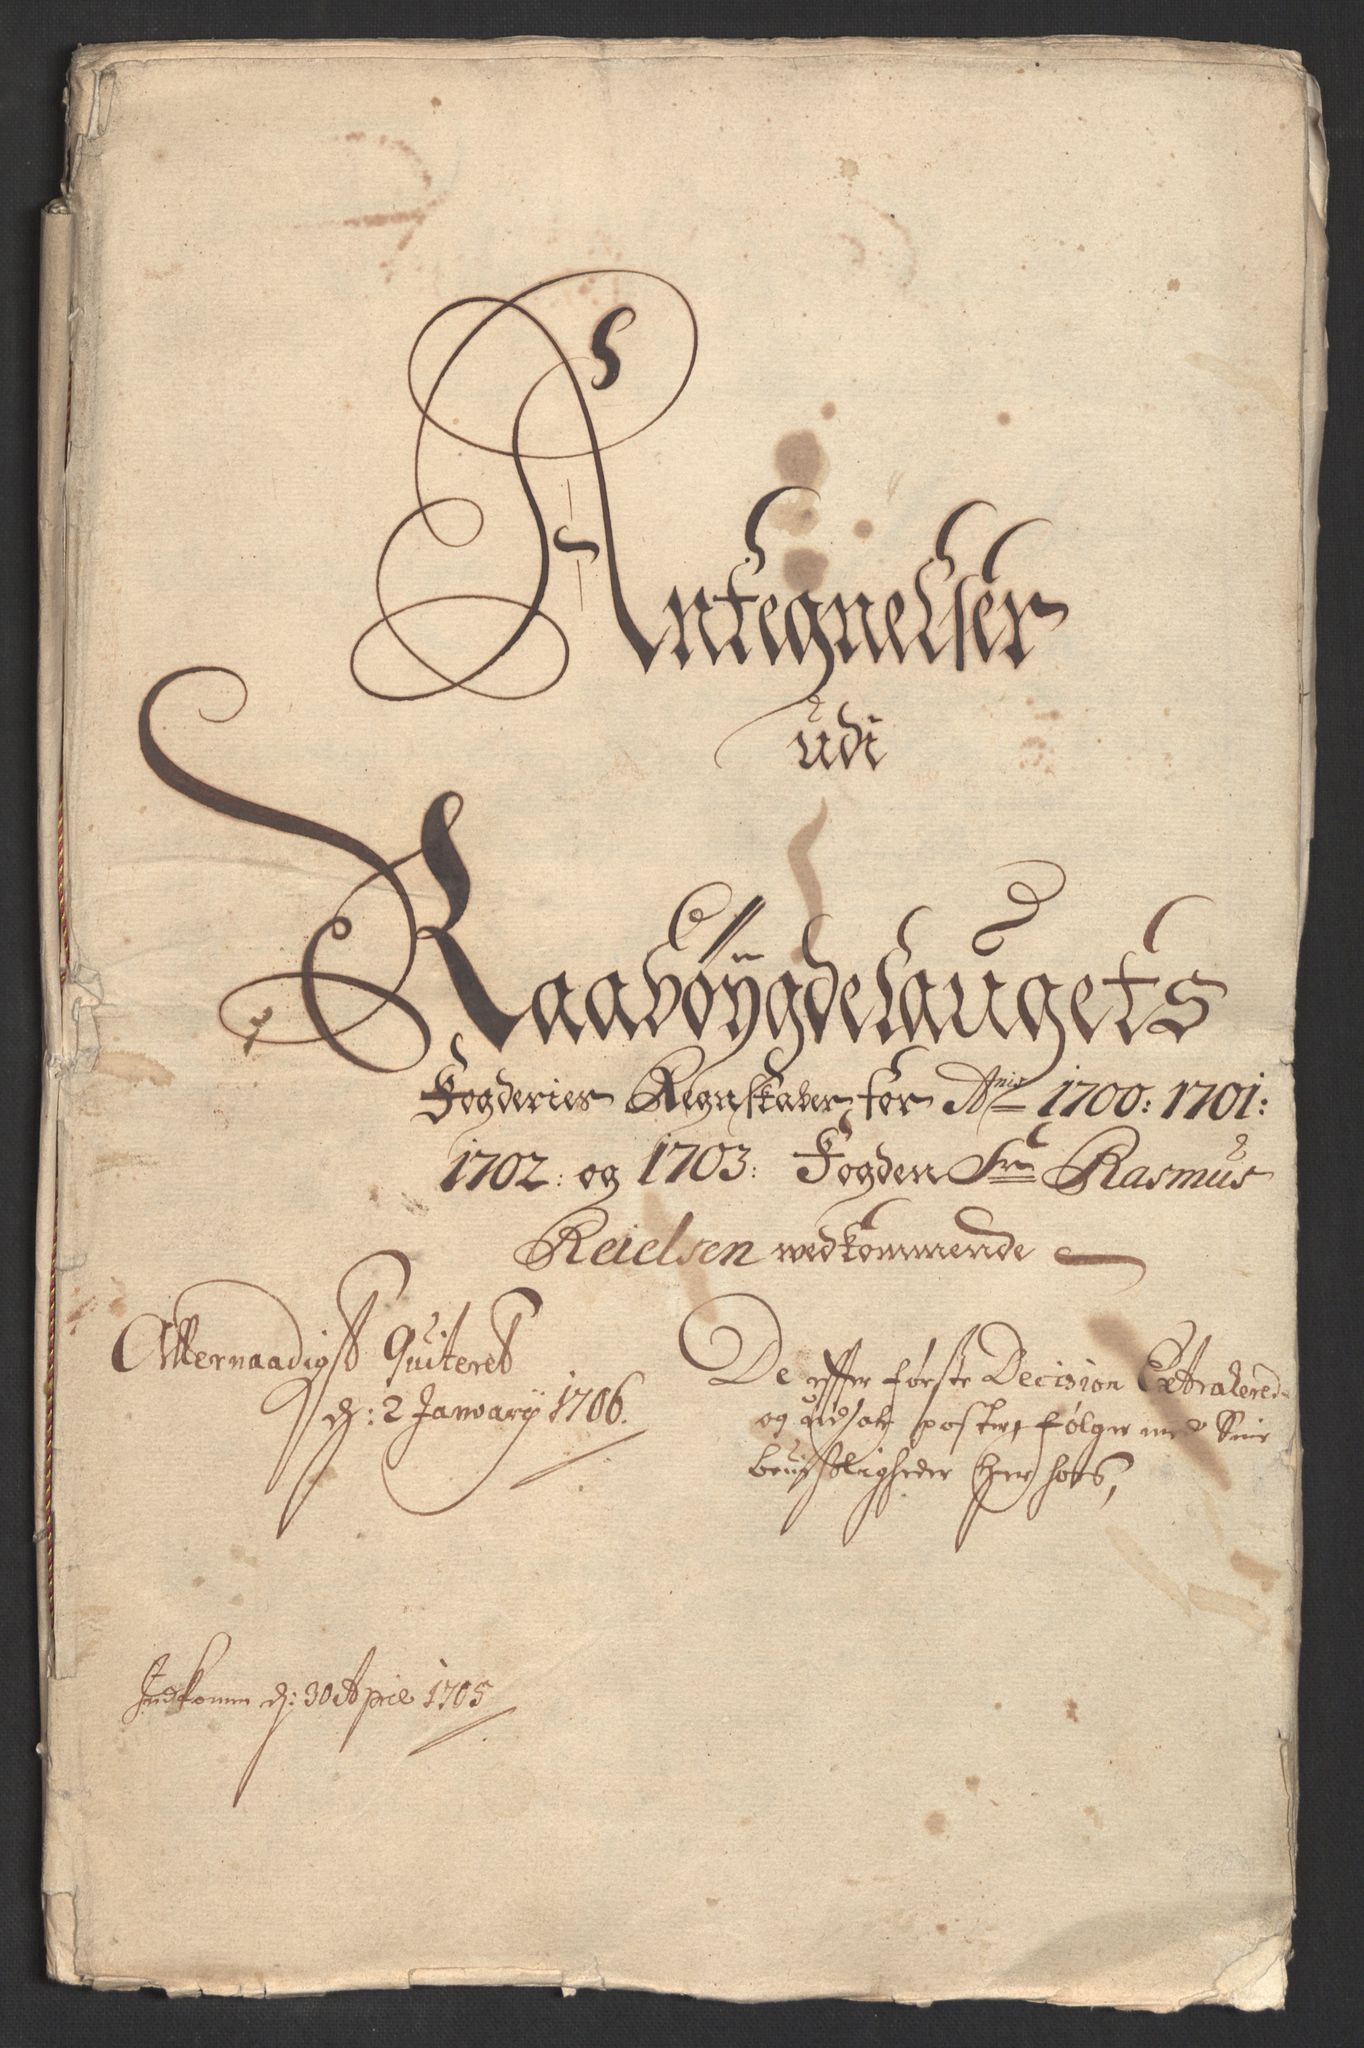 Antegnelser
udi
Raabøÿgdelaugets
Fogderies Regnskaber for Anis 1700: 1701:
1702: og 1703: Fogden Sr Rasmus
Reielsen wedkommende
Allernaadigst Quiteret
d: 2 Januarij 1706.
De effter første Decision Extraherede
og udsatte poster, følger med Sine
beviisligheder her hoes,
Indkomm d: 30 April 1705